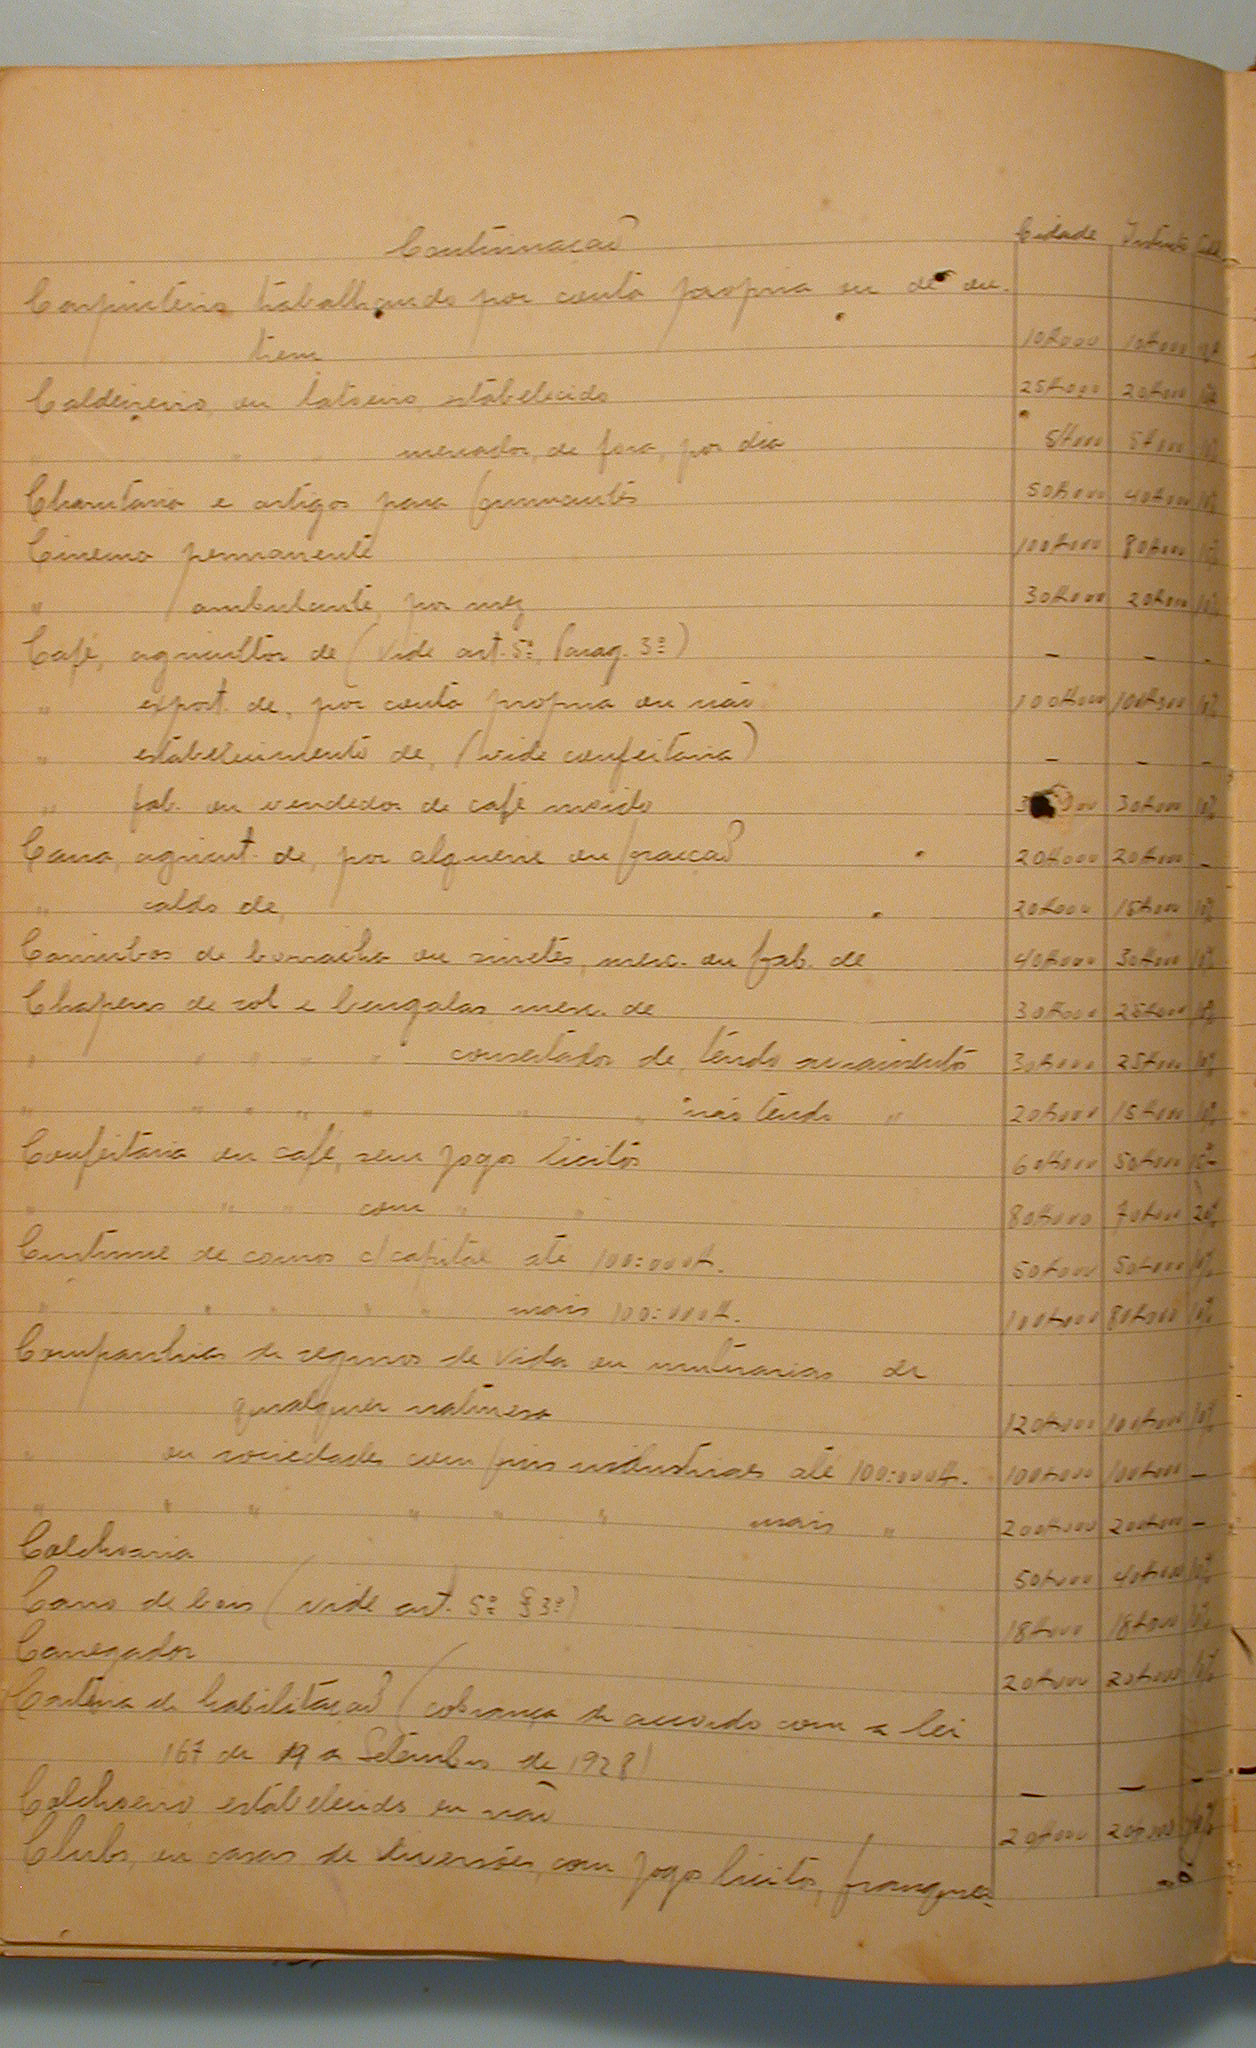 Continuação Cidade Districto
Carpinteiro trabalhando por conta propria ou de ou-
trem 10$000 10$000
Caldeireiro, ou latoeiro, estabelecido 25$000 20$000
" " " mercador, de fora, por dia 5$000 5$000
Charutaria e artigos para fumantes 50$000 40$000 10%
Cinema permanente 100$000 80$000 10%
" ambulante, por mez 30$000 20$000 10%
Café, agricultor de (vide art. 5º, parag. 3º) – – –
" export. de, por conta propria ou não 100$000 100$000 10%
" estabelecimento de, (vide confeitaria) – – –
" fab. ou vendedor de café moido 30$000 10%
Cana, agricult. de, por alqueire ou fracção 20$000 20$000 –
" caldo de, 20$000 15$000 10%
Carimbos de borracha ou sinetes, merc. ou fab. de 40$000 30$000 10%
Chapeus de sol e bengalas merc. de 30$000 25$000 10%
" " " " " concertador de, tendo armamentos 30$000 25$000 10%
" " " " " " " não tendo " 20$000 15$000 10%
Confeitaria ou café, sem jogos licitos 60$000 50$000
" " " com " " 80$000 70$000 20%
Curtume de couros c/ capital até 100:000$. 50$000 50$000 10%
" " " " " mais 100:000$. 100$000 80$000 10%
Companhias de seguros de vida ou mutuarias de
qualquer natureza 120$000 100$000 10%
" ou sociedades com fins industriaes até 100:000$. 100$000 100$000 –
" " " " " " mais " 200$000 200$000 –
Colchoaria 50$000 40$000 10%
Carro de bois (vide art. 5º § 3º) 18$000 18$000
Carregador 20$000 20$000 10%
Carteira de habilitação (cobrança de accordo com a lei
167 de 19 de Setembro de 1928) – – –
Colchoeiro estabelecido ou não 20$000 20$000 10%
Clubs, ou casas de diversões, com jogos licitos, franquea-